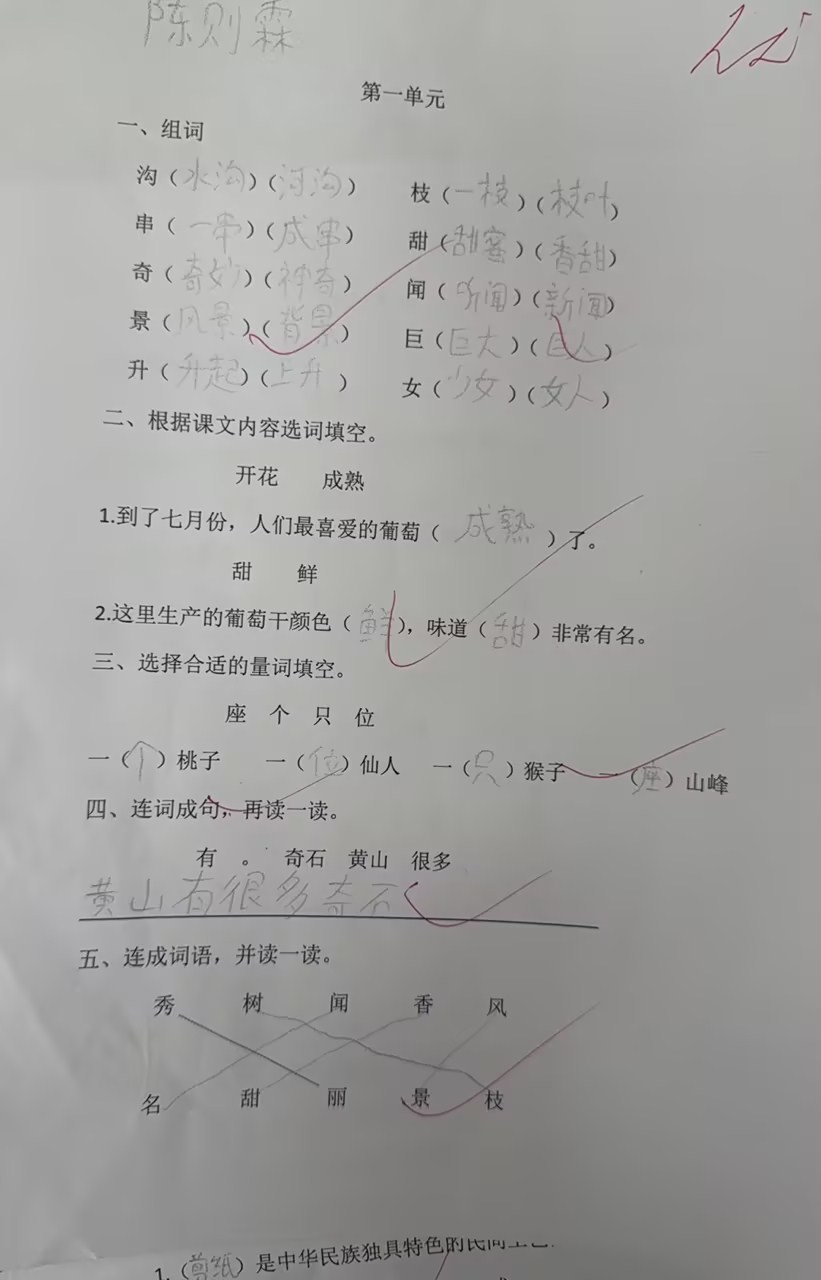 陈则霖
第一单元
一、组词
沟（水沟）（河沟） 枝（一枝）（枝叶）
串（一串）（成串） 甜（甜蜜）（香甜）
奇（奇妙）（神奇） 闻（听闻）（新闻）
景（风景）（背景） 巨（巨大）（巨人）
升（升起）（上升） 女（少女）（女人）
二、根据课文内容选词填空。
开花 成熟
1.到了七月份，人们最喜爱的葡萄（成熟）了。
甜 鲜
2.这里生产的葡萄干颜色（鲜），味道（甜）非常有名。
三、选择合适的量词填空。
座 个 只 位
一（个）桃子 一（位）仙人 一（只）猴子 一（座）山峰
四、连词成句，再读一读。
有 。 奇石 黄山 很多
黄山有很多奇石
五、连成词语，并读一读。
秀 树 闻 香 风
名 甜 丽 景 枝
1.（剪纸）是中华民族独具特色的民间